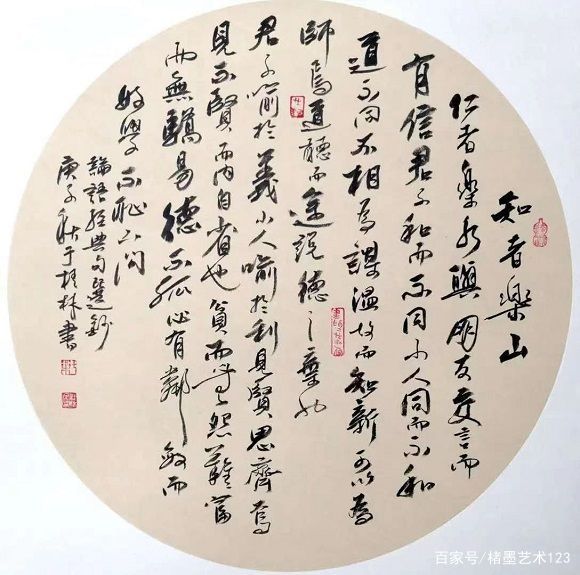 知者樂山
仁者樂水與朋友交言而
有信君子和而不同小人同而不和
道不同不相為謀溫故而知新可以為
師焉道聽而途說德之棄也
君子喻於義小人喻於利見賢思齊焉
見不賢而內自省也貧而無怨難富
而無驕易德不孤必有鄰敏而
好學不恥下問
論語經典句選鈔
庚子秋于桂林書
百家号/楮墨艺术123